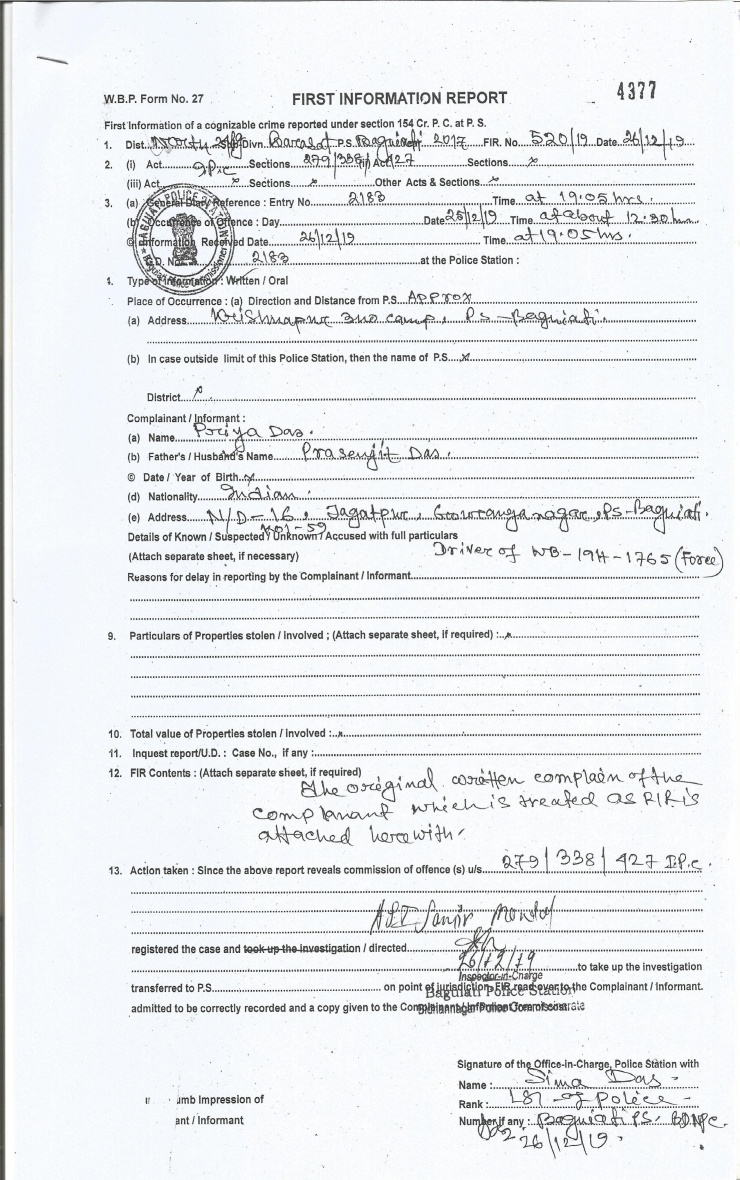 4377
W.B.P. Form No. 27 FIRST INFORMATION REPORT
First Information of a cognizable crime reported under section 154 Cr. P. C. at P. S.
1. Dist. North 24 Divn. Barasat P.S. Baguiati 2017 FIR. No 520/19 Date 26/12/19
2. (i) Act IPC Sections 279/338/427 (ii) Act Sections x
(iii) Act x Sections x Other Acts & Sections x
3. (a) General Diary Reference : Entry No. 2183 Time at 19.05 hrs.
(b) Occurrence of Offence : Day Date 25/12/19 Time at about 12.30 hrs
© Information Received Date 26/12/19 Time at 19.05 hrs.
G.D. No. 2183 at the Police Station :
BAGUIATI POLICE STATION
4. Type of Information : Written / Oral
Place of Occurrence : (a) Direction and Distance from P.S. Approx
(a) Address Krishnapur 3no camp, Ps-Baguiati.
(b) In case outside limit of this Police Station, then the name of P.S. x
District x
Complainant / Informant :
(a) Name Priya Das.
(b) Father's / Husband's Name Prasenjit Das.
© Date / Year of Birth x
(d) Nationality Indian.
(e) Address N/D-16, Jagatpur, Gouranganagar, Ps-Baguiati.
Kol-59
Details of Known / Suspected / Unknown / Accused with full particulars
(Attach separate sheet, if necessary) Driver of WB-19H-1765 (Force)
Reasons for delay in reporting by the Complainant / Informant
9. Particulars of Properties stolen / Involved ; (Attach separate sheet, if required) : x
10. Total value of Properties stolen / Involved : x
11. Inquest report/U.D. : Case No., if any :
12. FIR Contents : (Attach separate sheet, if required)
The original written complain of the
complanant which is treated as FIR is
attached herewith.
13. Action taken : Since the above report reveals commission of offence (s) u/s 279/338/427 I.P.C.
ASI Samir Mondal
registered the case and took up the investigation / directed
26/12/19
to take up the investigation
Inspector-in-Charge
transferred to P.S. on point of jurisdiction. FIR read over to the Complainant / Informant.
Baguiati Police Station
admitted to be correctly recorded and a copy given to the Complainant / Informant free of cost
Bidhannagar Police Commissionerate
Signature of the Office-in-Charge, Police Station with
Name : Sima Das
umb Impression of
Rank : LSI of Police
ant / Informant
Number if any : Baguiati PS. BDNPC.
26/12/19.